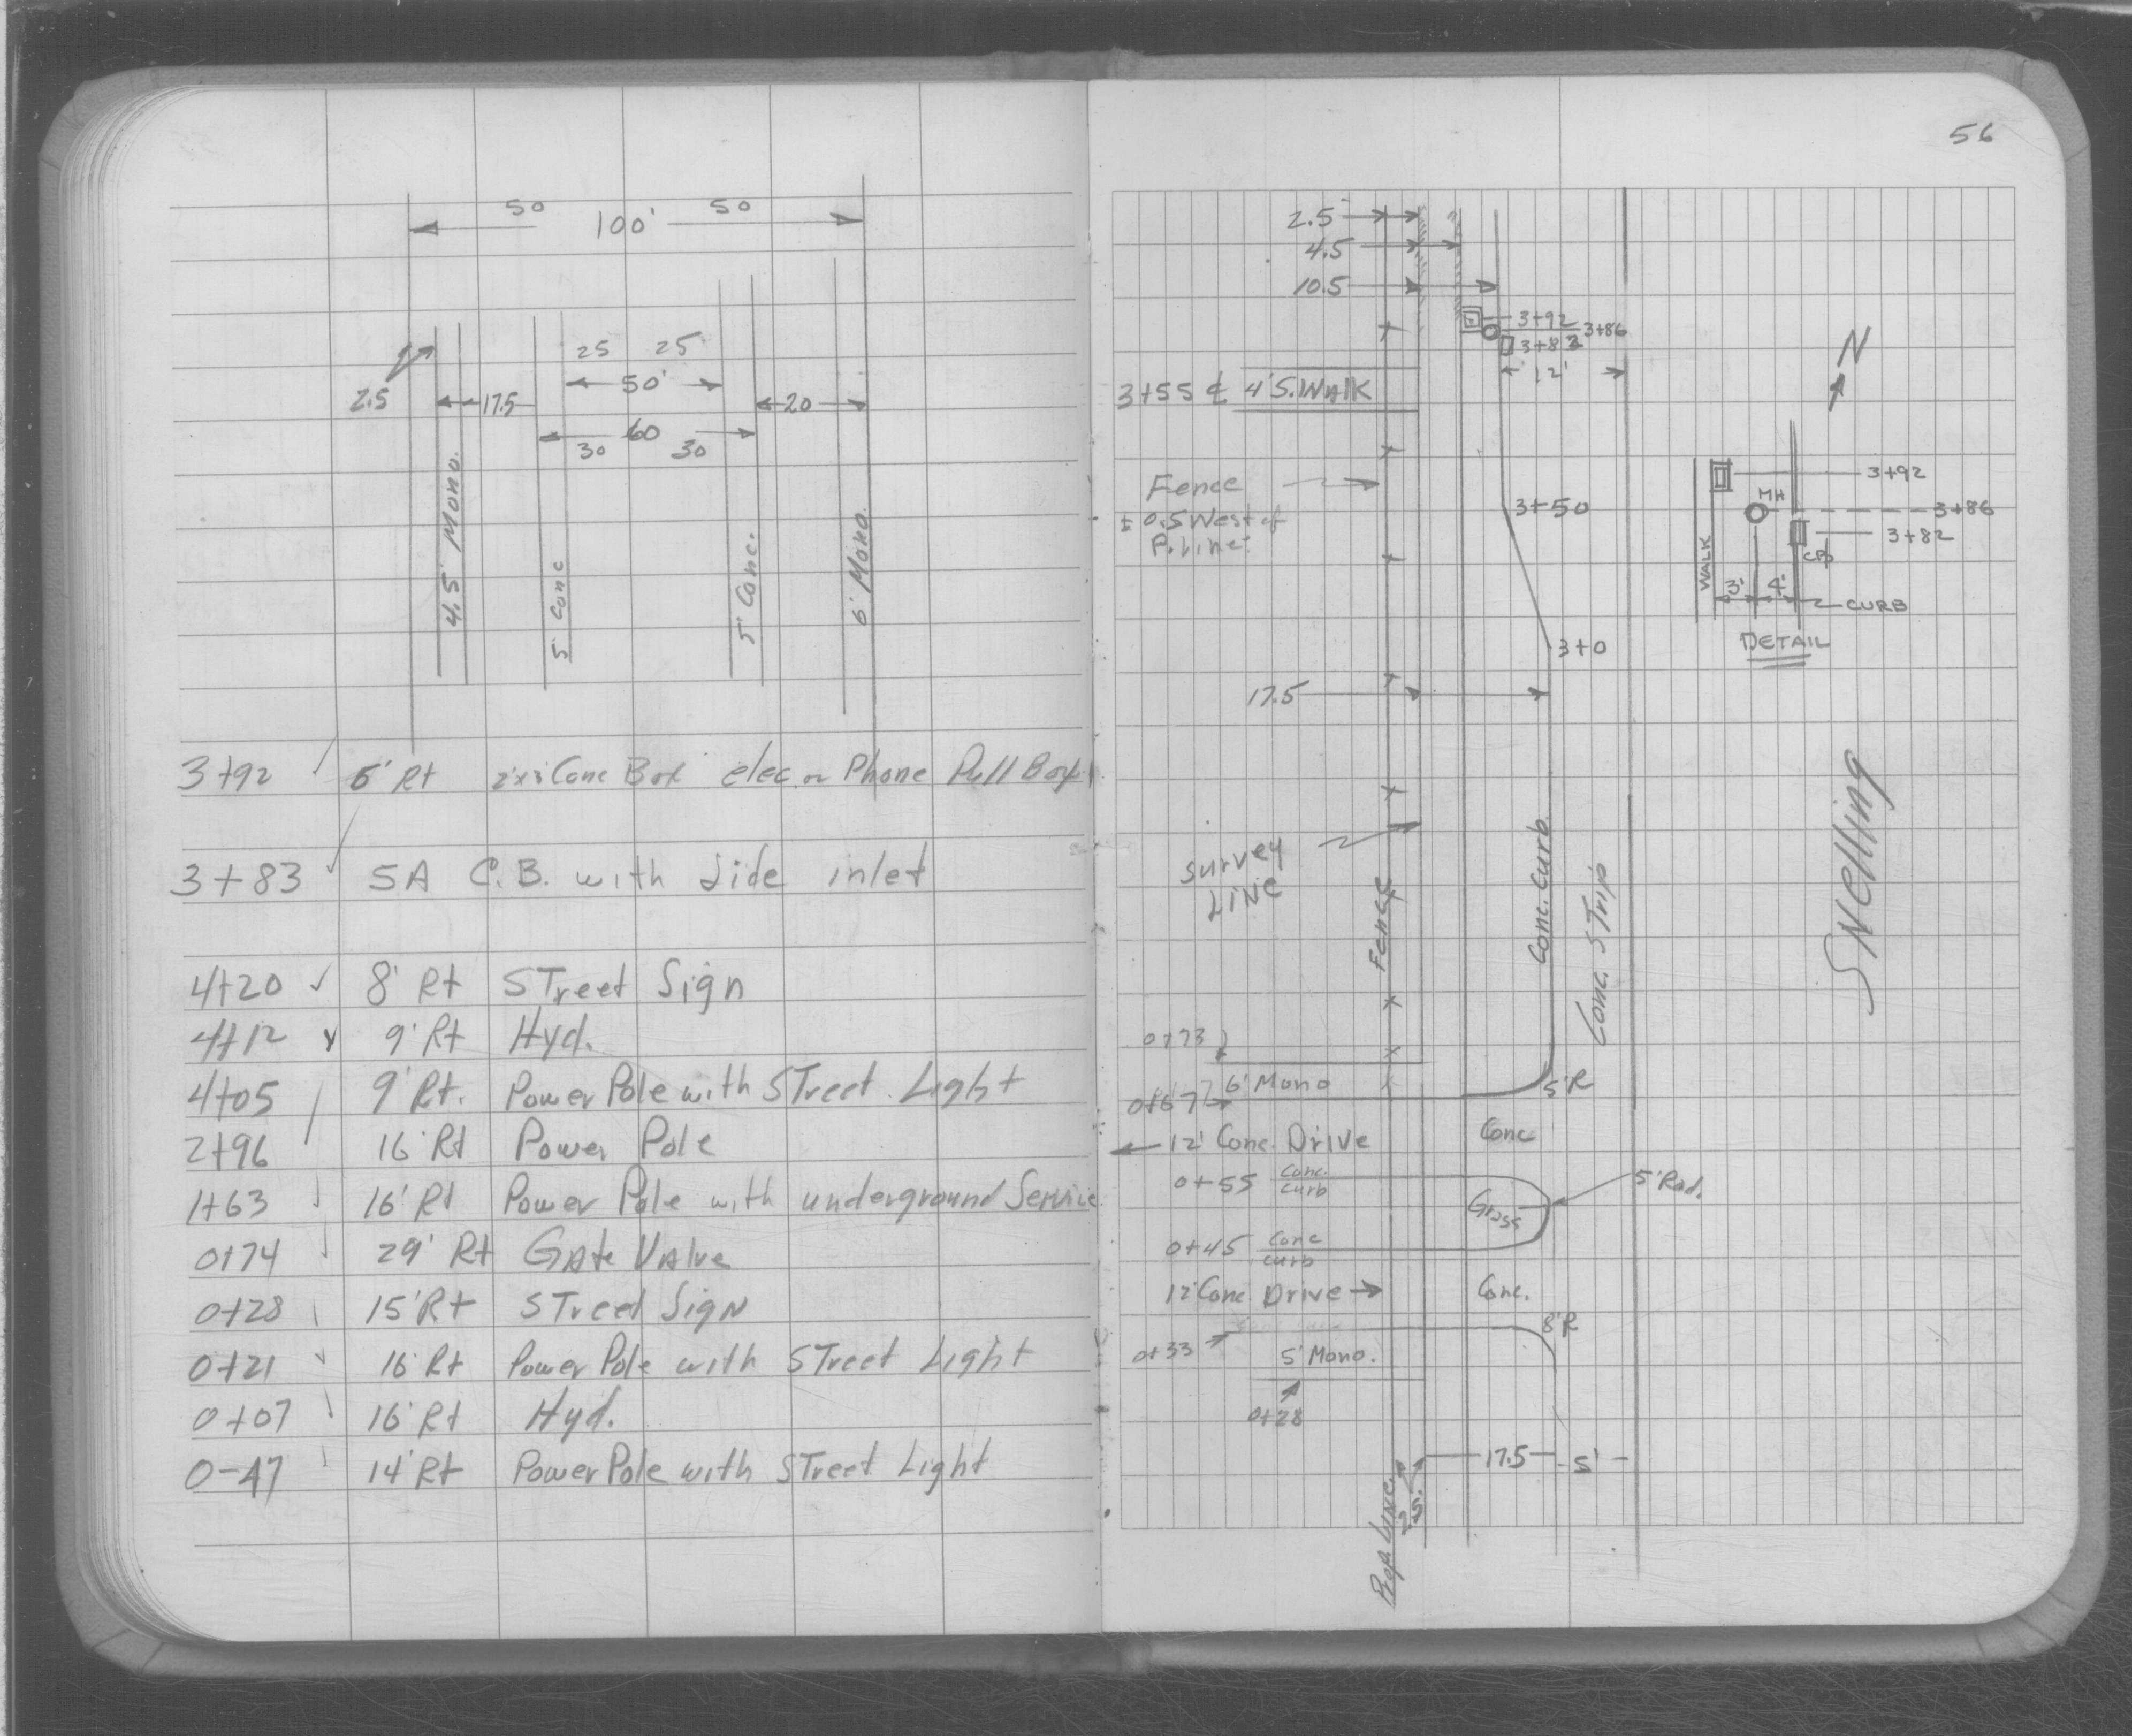 50 100' 50
25 25
50'
2.5 17.5 20
60
30 30
4.5' Mono.
5' Conc
5' Conc.
6' Mono.
3+92 6' Rt 2'x3' Conc Box elec. or Phone Pull Box
3+83 5A C.B. with side inlet
4+20 8' Rt Street Sign
4+12 9' Rt Hyd.
4+05 9' Rt. Power Pole with Street Light
2+96 16' Rt Power Pole
1+63 16' Rt Power Pole with underground Service
0+74 29' Rt Gate Valve
0+28 15' Rt Street Sign
0+21 16' Rt Power Pole with Street Light
0+07 16' Rt Hyd.
0-47 14' Rt Power Pole with Street Light
56
2.5
4.5
10.5
3+92
3+86
3+82
12'
3+55 ℄ 4' S. Walk
N
Fence
± 0.5 West of
P. Line
3+50
3+0
3+92
MH
3+86
3+82
CB
WALK
3' 4'
CURB
DETAIL
17.5
Survey
Line
Fence
Conc. Curb
Conc. Strip
Snelling
0+73
6' Mono
0+67
5'R
12' Conc. Drive
Conc
0+55 Conc. Curb
5' Rad.
Grass
0+45 Conc Curb
12' Conc Drive
Conc.
8'R
0+33
5' Mono.
0+28
17.5 5'
Prop Line
2.5